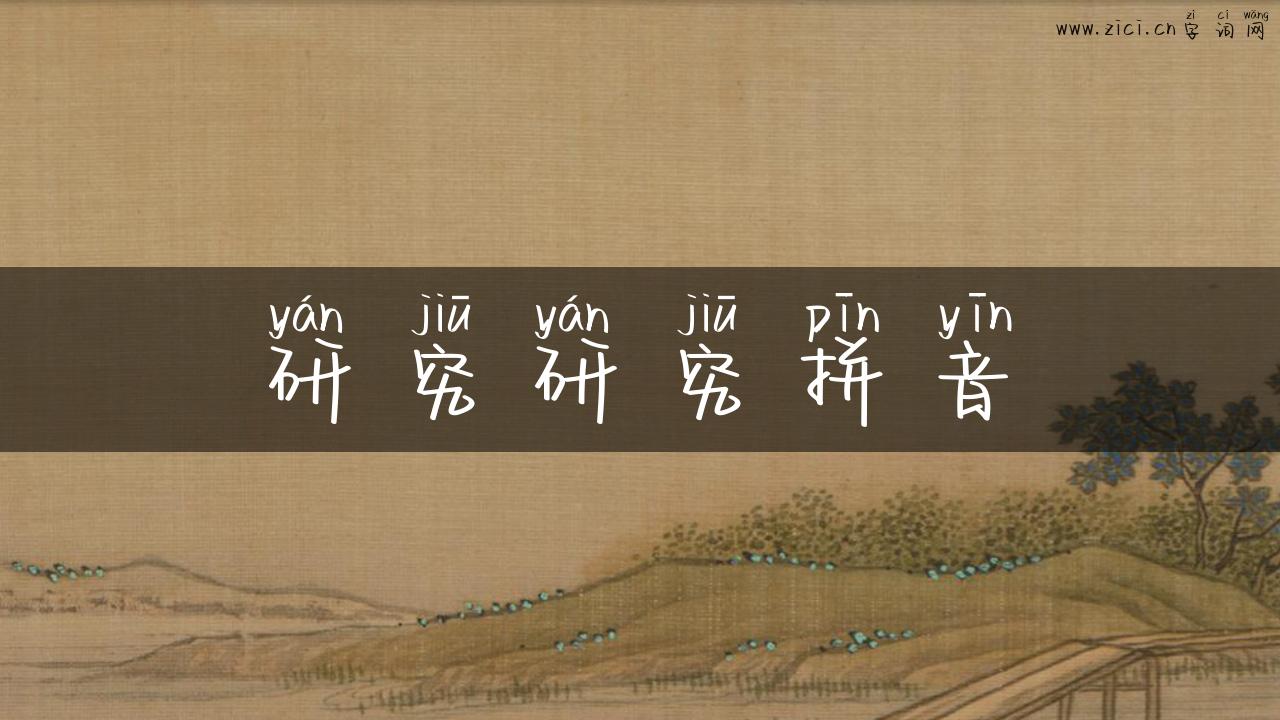 zì cí wǎng
www.zici.cn 字词网
yán jiū yán jiū pīn yīn
研究研究拼音